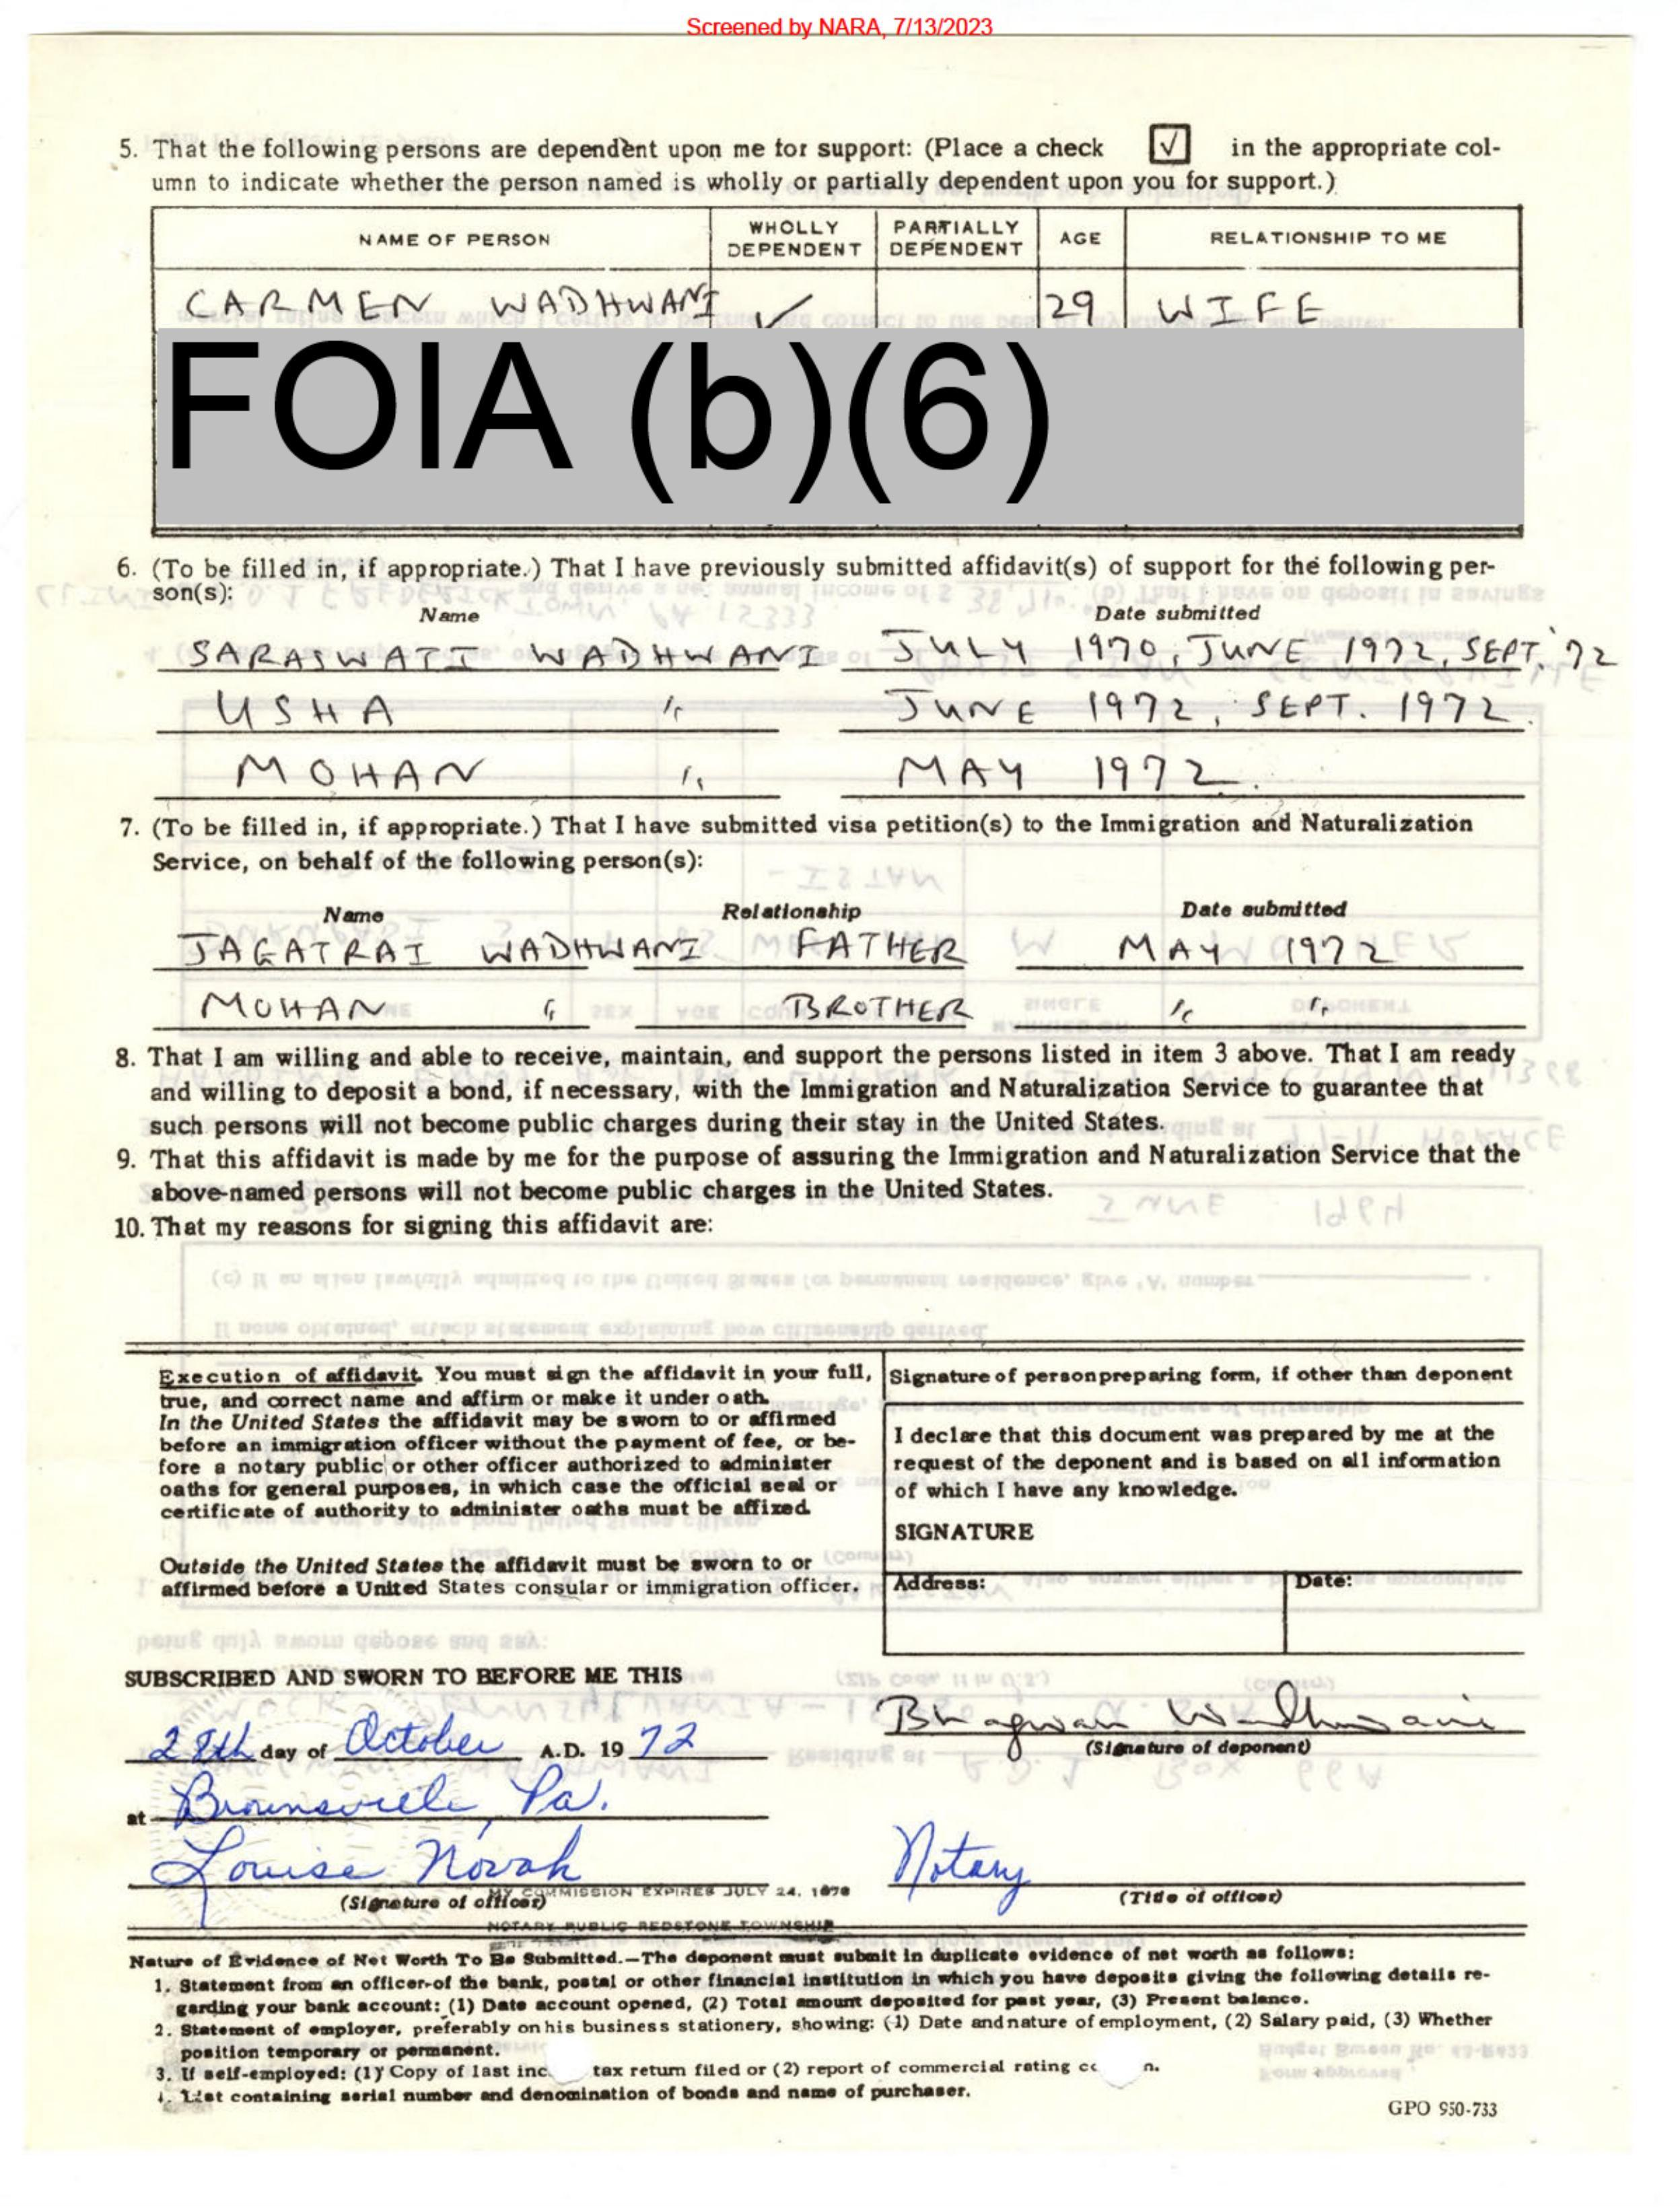 Screened by NARA, 7/13/2023
5. That the following persons are dependent upon me for support: (Place a check √ in the appropriate col-
umn to indicate whether the person named is wholly or partially dependent upon you for support.)
NAME OF PERSON WHOLLY DEPENDENT PARTIALLY DEPENDENT AGE RELATIONSHIP TO ME
CARMEN WADHWANI ✓ 29 WIFE
FOIA (b)(6)
6. (To be filled in, if appropriate.) That I have previously submitted affidavit(s) of support for the following per-
son(s):
Name Date submitted
SARASWATI WADHWANI JULY 1970, JUNE 1972, SEPT. '72
USHA " JUNE 1972, SEPT. 1972.
MOHAN " MAY 1972.
7. (To be filled in, if appropriate.) That I have submitted visa petition(s) to the Immigration and Naturalization
Service, on behalf of the following person(s):
Name Relationship Date submitted
JAGATRAI WADHWANI FATHER MAY 1972
MOHAN " BROTHER " "
8. That I am willing and able to receive, maintain, and support the persons listed in item 3 above. That I am ready
and willing to deposit a bond, if necessary, with the Immigration and Naturalization Service to guarantee that
such persons will not become public charges during their stay in the United States.
9. That this affidavit is made by me for the purpose of assuring the Immigration and Naturalization Service that the
above-named persons will not become public charges in the United States.
10. That my reasons for signing this affidavit are:
Execution of affidavit. You must sign the affidavit in your full,
true, and correct name and affirm or make it under oath.
In the United States the affidavit may be sworn to or affirmed
before an immigration officer without the payment of fee, or be-
fore a notary public or other officer authorized to administer
oaths for general purposes, in which case the official seal or
certificate of authority to administer oaths must be affixed.
Outside the United States the affidavit must be sworn to or
affirmed before a United States consular or immigration officer.
Signature of person preparing form, if other than deponent
I declare that this document was prepared by me at the
request of the deponent and is based on all information
of which I have any knowledge.
SIGNATURE
Address: Date:
SUBSCRIBED AND SWORN TO BEFORE ME THIS
28th day of October A.D. 19 72
Bhagwan Wadhwani
(Signature of deponent)
at Brownsville, Pa.
Louise Novak Notary
(Signature of officer) MY COMMISSION EXPIRES JULY 24, (Title of officer)
NOTARY PUBLIC REDSTONE TOWNSHIP
Nature of Evidence of Net Worth To Be Submitted.—The deponent must submit in duplicate evidence of net worth as follows:
1. Statement from an officer of the bank, postal or other financial institution in which you have deposits giving the following details re-
garding your bank account: (1) Date account opened, (2) Total amount deposited for past year, (3) Present balance.
2. Statement of employer, preferably on his business stationery, showing: (1) Date and nature of employment, (2) Salary paid, (3) Whether
position temporary or permanent.
3. If self-employed: (1) Copy of last inc tax return filed or (2) report of commercial rating co n.
4. List containing serial number and denomination of bonds and name of purchaser.
GPO 950-733